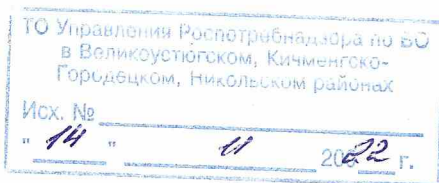 ТО Управления Роспотребнадзора по ВО
в Великоустюгском, Кичменгско-
Городецком, Никольском районах
Исх. №
" 14 " 11 2022 г.